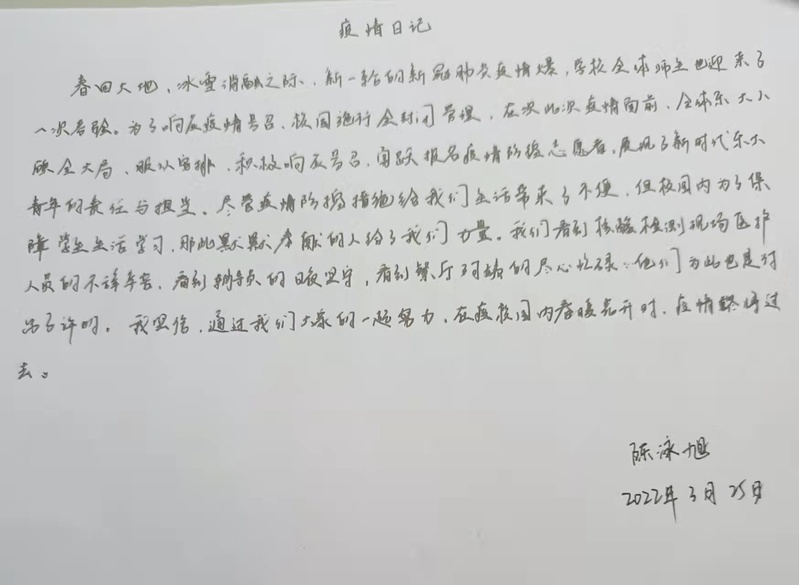 疫情日记
春回大地,冰雪消融之际,新一轮的新冠肺炎疫情爆,学校全体师生也迎来了
一次考验。为了响应疫情号召,校园施行全封闭管理,在次此次疫情面前,全体东大人
顾全大局、服从安排、积极响应号召,踊跃报名疫情防控志愿者,展现了新时代东大
青年的责任与担当。尽管疫情防控措施给我们生活带来了不便,但校园内为了保
障学生生活学习,那些默默奉献的人给了我们力量。我们看到核酸检测现场医护
人员的不辞辛苦,看到辅导员的日夜坚守,看到餐厅阿姨的尽心忙碌,他们为此也是付
出了许多。我坚信,通过我们大家的一起努力,在校园内春暖花开时,疫情终将过
去。
陈泳旭
2022年3月25日